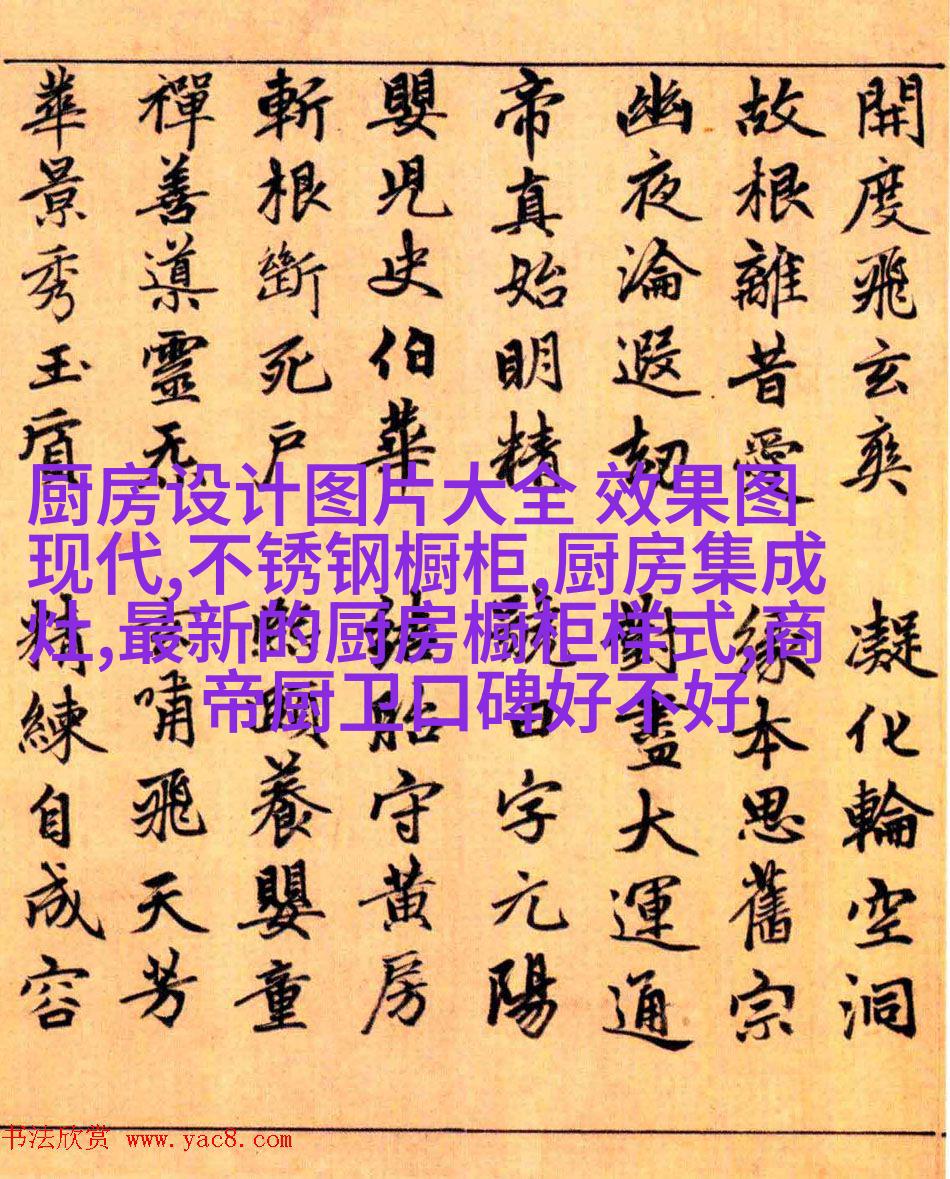 開度飛玄爽 凝化輪空洞
故根離昔愛 緣本思舊宗
幽夜淪遐劫 對盡大運通
帝真始明精 號曰字元陽
嬰兒史伯華 結胎守黃房
斬根斷死戶 熙頤養嬰童
禪善導靈炁 玄嘯飛天芳
華景秀玉質 精練自成容
厨房设计图片大全 效果图
现代,不锈钢橱柜,厨房集成
灶,最新的厨房橱柜样式,商
帝厨卫口碑好不好
书法欣赏 www.yac8.com